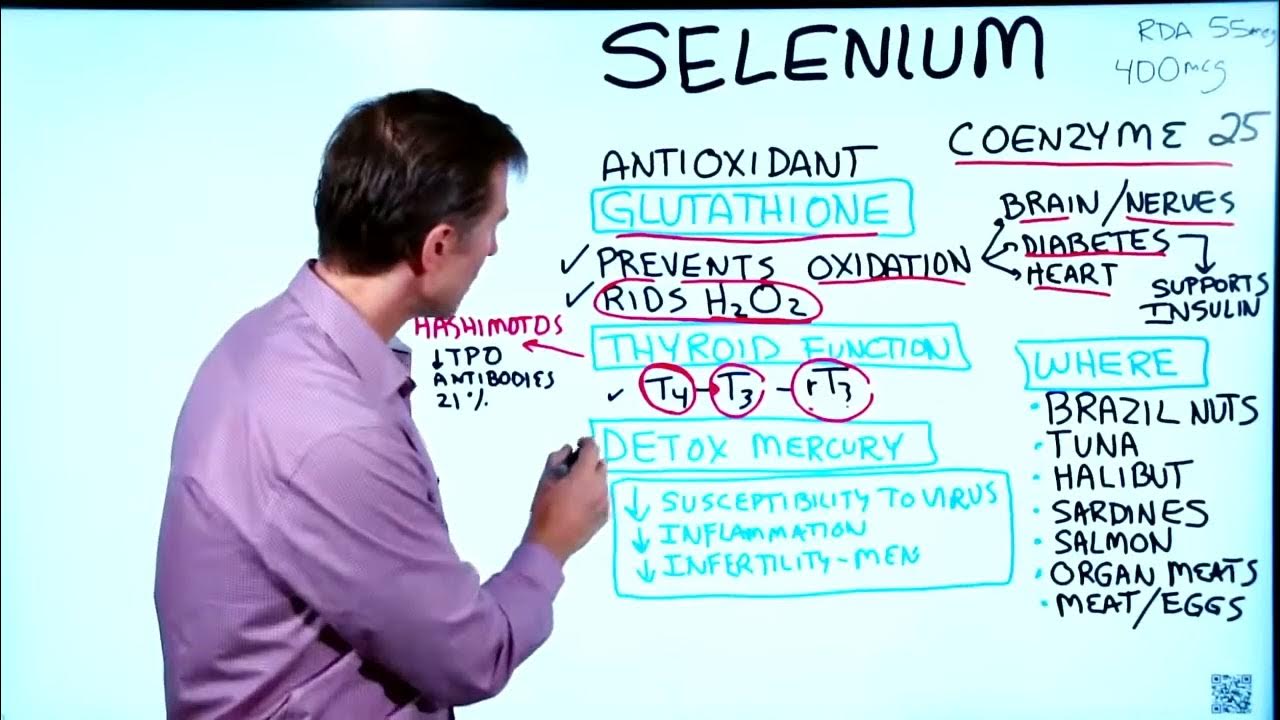 SELENIUM
RDA 55mcg
400mcg
COENZYME 25
ANTIOXIDANT
GLUTATHIONE
✓ PREVENTS OXIDATION
✓ RIDS H₂O₂
BRAIN/NERVES
DIABETES
HEART
SUPPORTS
INSULIN
THYROID FUNCTION
HASHIMOTOS
↓TPO
ANTIBODIES
21%
✓ T4 - T3 - rT3
DETOX MERCURY
↓ SUSCEPTIBILITY TO VIRUS
↓ INFLAMMATION
↓ INFERTILITY-MEN
WHERE
• BRAZIL NUTS
• TUNA
• HALIBUT
• SARDINES
• SALMON
• ORGAN MEATS
• MEAT/EGGS